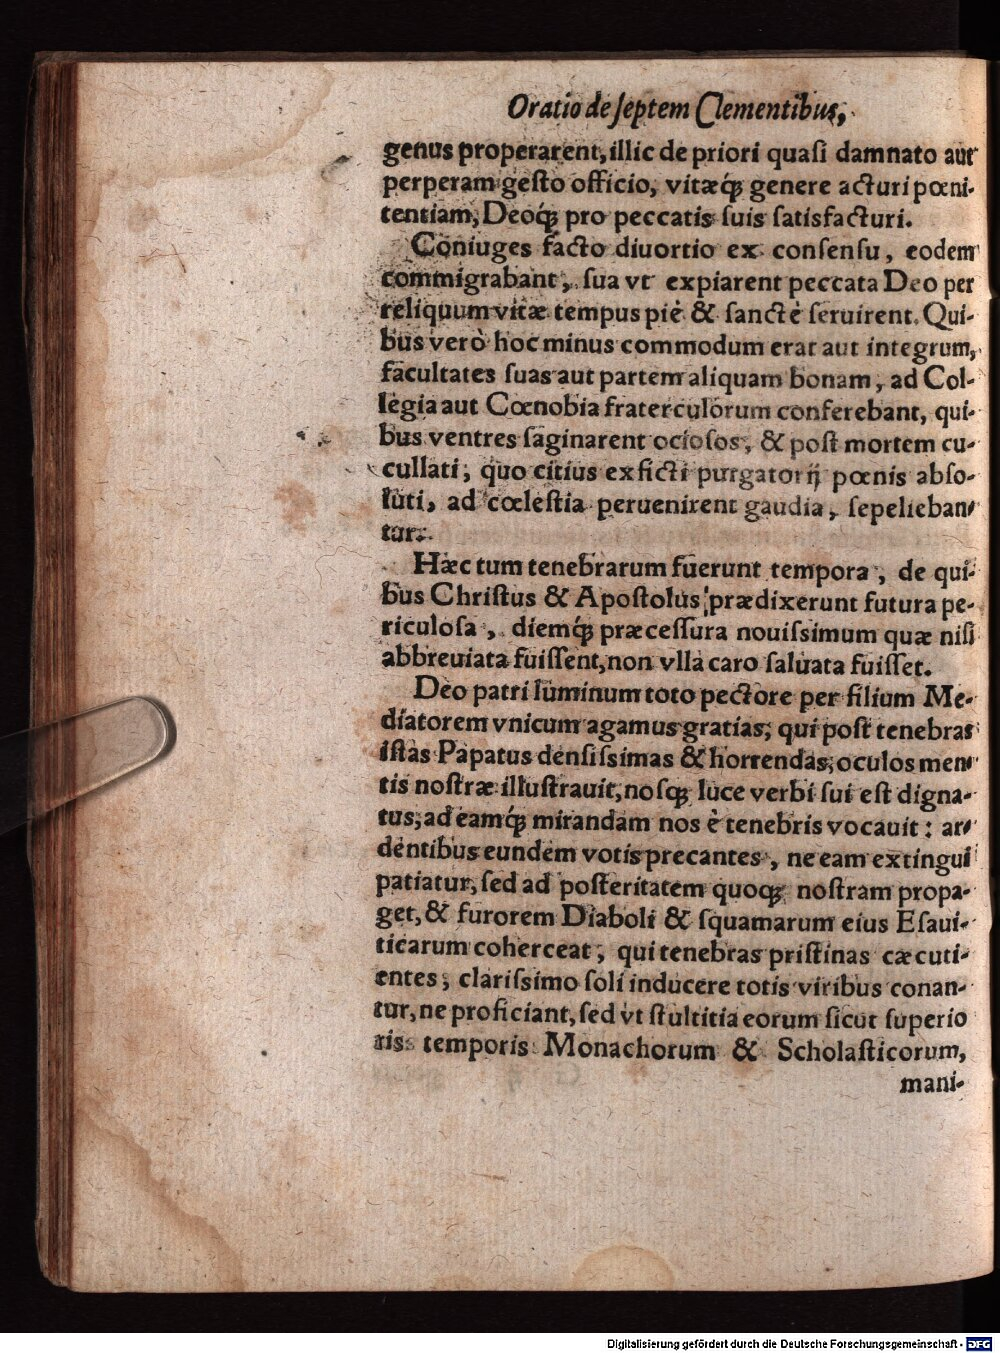 Oratio de ſeptem Clementibus,
genus properarent, illic de priori quaſi damnato aut
perperam geſto officio, vitæq́; genere acturi pœni-
tentiam, Deoq́; pro peccatis ſuis ſatisfacturi.
Coniuges facto diuortio ex conſenſu, eodem
commigrabant, ſua vt expiarent peccata Deo per
reliquum vitæ tempus piè & ſanctè ſeruirent. Qui-
bus verò hoc minus commodum erat aut integrum,
facultates ſuas aut partem aliquam bonam, ad Col-
legia aut Cœnobia fraterculorum conferebant, qui-
bus ventres ſaginarent ocioſos, & poſt mortem cu-
cullati, quo citius ex ficti purgatorij pœnis abſo-
luti, ad cœleſtia peruenirent gaudia, ſepelieban-
tur.
Hæc tum tenebrarum fuerunt tempora, de qui-
bus Chriſtus & Apoſtolus prædixerunt futura pe-
riculoſa, diemq́; præceſſura nouiſsimum quæ niſi
abbreuiata fuiſſent, non vlla caro ſaluata fuiſſet.
Deo patri luminum toto pectore per filium Me-
diatorem vnicum agamus gratias, qui poſt tenebras
iſtas Papatus denſiſsimas & horrendas, oculos men-
tis noſtræ illuſtrauit, noſq; luce verbi ſui eſt digna-
tus, ad eamq́; mirandam nos è tenebris vocauit: ar-
dentibus eundem votis precantes, ne eam extingui
patiatur, ſed ad poſteritatem quoq; noſtram propa-
get, & furorem Diaboli & ſquamarum eius Eſaui-
ticarum coherceat, qui tenebras priſtinas cæcuti-
entes, clariſsimo ſoli inducere totis viribus conan-
tur, ne proficiant, ſed vt ſtultitia eorum ſicut ſuperio
ris temporis Monachorum & Scholaſticorum,
mani-
Digitalisierung gefördert durch die Deutsche Forschungsgemeinschaft - DFG